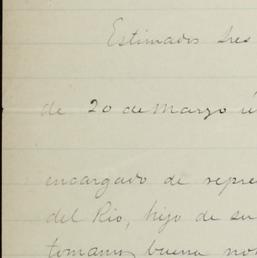 Estimados Sres
de 20 de Marzo ú
encargado de repre
del Rio, hijo de su
tomamos buena no